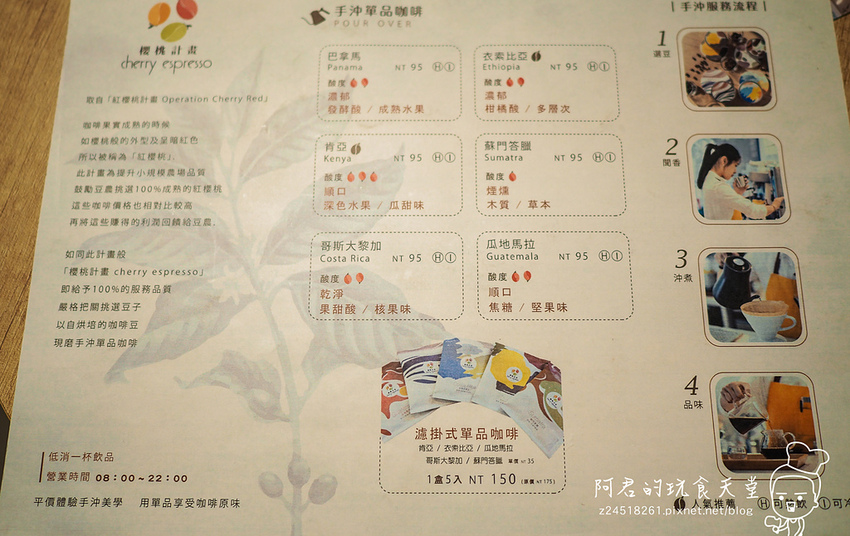 櫻桃計畫
cherry espresso
取自「紅櫻桃計畫 Operation Cherry Red」
咖啡果實成熟的時候
如櫻桃般的外型及呈暗紅色
所以被稱為「紅櫻桃」
此計畫為提升小規模農場品質
鼓勵豆農挑選100%成熟的紅櫻桃
這些咖啡價格也相對比較高
再將這些賺得的利潤回饋給豆農.
如同此計畫般
「櫻桃計畫 cherry espresso」
即給予100%的服務品質
嚴格把關挑選豆子
以自烘培的咖啡豆
現磨手沖單品咖啡
低消一杯飲品
營業時間 08:00~22:00
平價體驗手沖美學 用單品享受咖啡原味
手沖單品咖啡
POUR OVER
巴拿馬
Panama NT 95 Ⓗ Ⓘ
酸度
濃郁
發酵酸 / 成熟水果
衣索比亞
Ethiopia NT 95 Ⓗ Ⓘ
酸度
濃郁
柑橘酸 / 多層次
肯亞
Kenya NT 95 Ⓗ Ⓘ
酸度
順口
深色水果 / 瓜甜味
蘇門答臘
Sumatra NT 95 Ⓗ Ⓘ
酸度
煙燻
木質 / 草本
哥斯大黎加
Costa Rica NT 95 Ⓗ Ⓘ
酸度
乾淨
果甜酸 / 核果味
瓜地馬拉
Guatemala NT 95 Ⓗ Ⓘ
酸度
順口
焦糖 / 堅果味
濾掛式單品咖啡
肯亞 / 衣索比亞 / 瓜地馬拉
哥斯大黎加 / 蘇門答臘 單價 NT 35
1盒5入 NT 150 (原價 NT 175)
手沖服務流程
1
選豆
2
聞香
3
沖煮
4
品味
人氣推薦 Ⓗ可熱飲 Ⓘ可冷
阿君的玩食天堂
z24518261.pixnet.net/blog